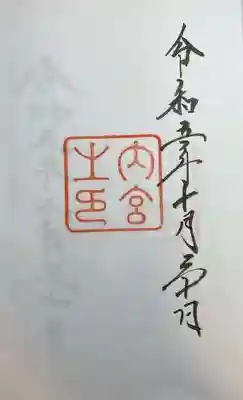 令和五年十月
内宮
之印